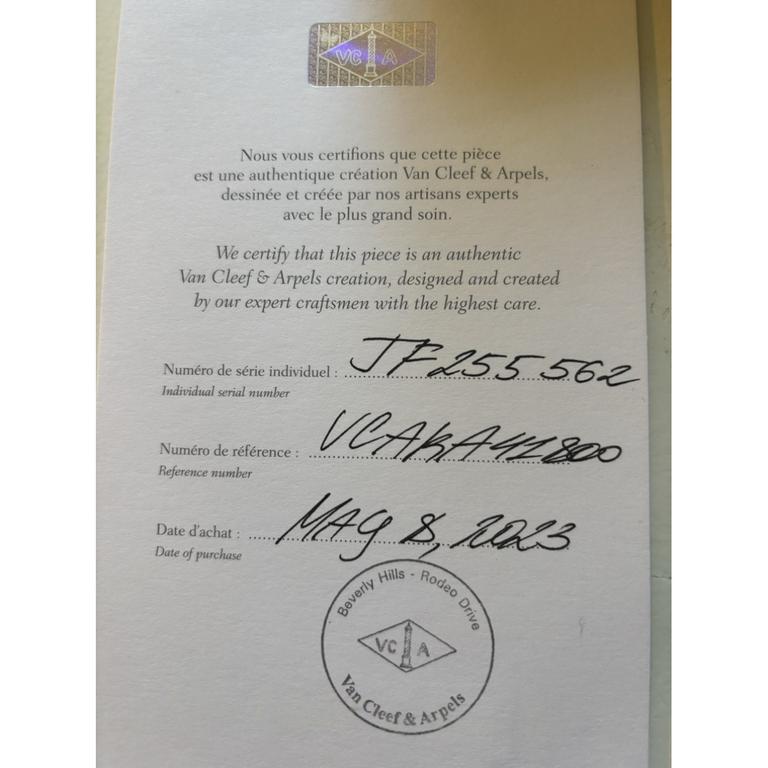 VC A
Nous vous certifions que cette pièce
est une authentique création Van Cleef & Arpels,
dessinée et créée par nos artisans experts
avec le plus grand soin.
We certify that this piece is an authentic
Van Cleef & Arpels creation, designed and created
by our expert craftsmen with the highest care.
Numéro de série individuel : JF255562
Individual serial number
Numéro de référence : VCARA41800
Reference number
Date d'achat : MAY 8, 2023
Date of purchase
Beverly Hills - Rodeo Drive
VC A
Van Cleef & Arpels